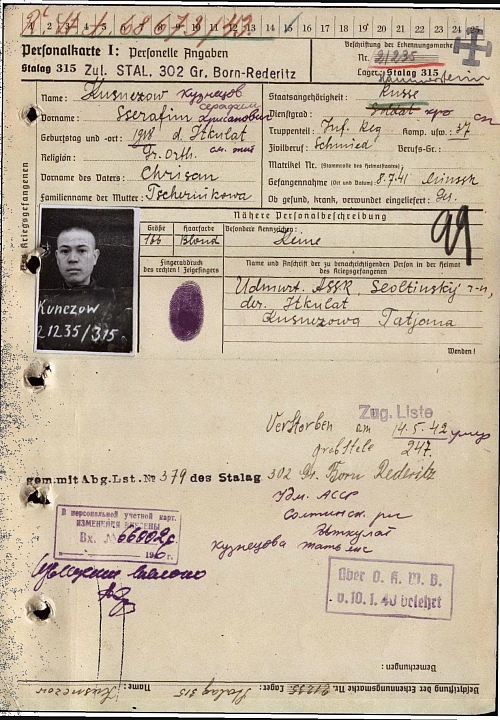 1 2 3 4 5 6 7 8 9 10 11 12 13 14 15 16 17 18 19 20 21 22 23 24 25
Personalkarte I: Personelle Angaben
Beschriftung der Erkennungsmarke
Stalag 315 Zul. STAL. 302 Gr. Born-Rederitz
Nr. 21235
Lager: Stalag 315
Hammerstein
Kriegsgefangenen
Name: Kusnezow Кузнецов
Staatsangehörigkeit: Russe
Vorname: Sserafim Серафим Хрисанович
Dienstgrad: Soldat
Geburtstag und -ort: 1918 d. Itkulat
Truppenteil: Inf. Reg Komp. usw.: 37
Religion: Gr. Orth.
Zivilberuf: Schmied Berufs-Gr.:
Vorname des Vaters: Chrisan
Matrikel Nr. (Stammrolle des Heimatstaates):
Gefangennahme (Ort und Datum): 8.7.41 Minssk
Familienname der Mutter: Tschernikowa
Ob gesund, krank, verwundet eingeliefert: Gs.
Nähere Personalbeschreibung
99
Größe Haarfarbe Besondere Kennzeichen:
166 Blond Keine
Fingerabdruck
des rechten! Zeigefingers
Name und Anschrift der zu benachrichtigenden Person in der Heimat
des Kriegsgefangenen
Udmurt. ASSR. Seoltinskij r-n,
der. Itkulat
Kusnezowa Tatjana
Kunezow
21235/315
Wenden!
Zug. Liste
Verstorben am 14.5.42 умер
Grabstele 247.
gem. mit Abg. Lst. № 379 des Stalag 302 Gr. Born Rederitz
Удм. АССР
Иткулат
Кузнецова
В персональной учетной карт.
ИЗМЕНЕНИЯ ВНЕСЕНЫ
Вх. № 66802с
196 г.
Über O. K. W. B.
v. 10. 1. 40 belehrt
Bemerkungen:
Beschriftung der Erkennungsmarke Nr. 21235 Lager: Stalag 315 Name: Kusnezow